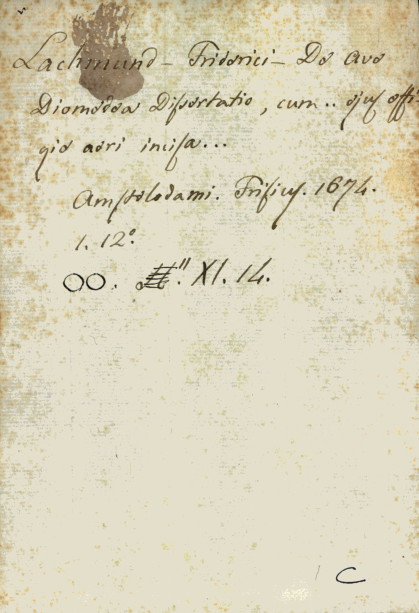 Lachmund - Friderici - De Ave
Diomedea Dissertatio, cum.. ejus effi-
gie aeri incisa...
Amstelodami. Frisius. 1674.
1. 12°.
OO. XI. 14.
C